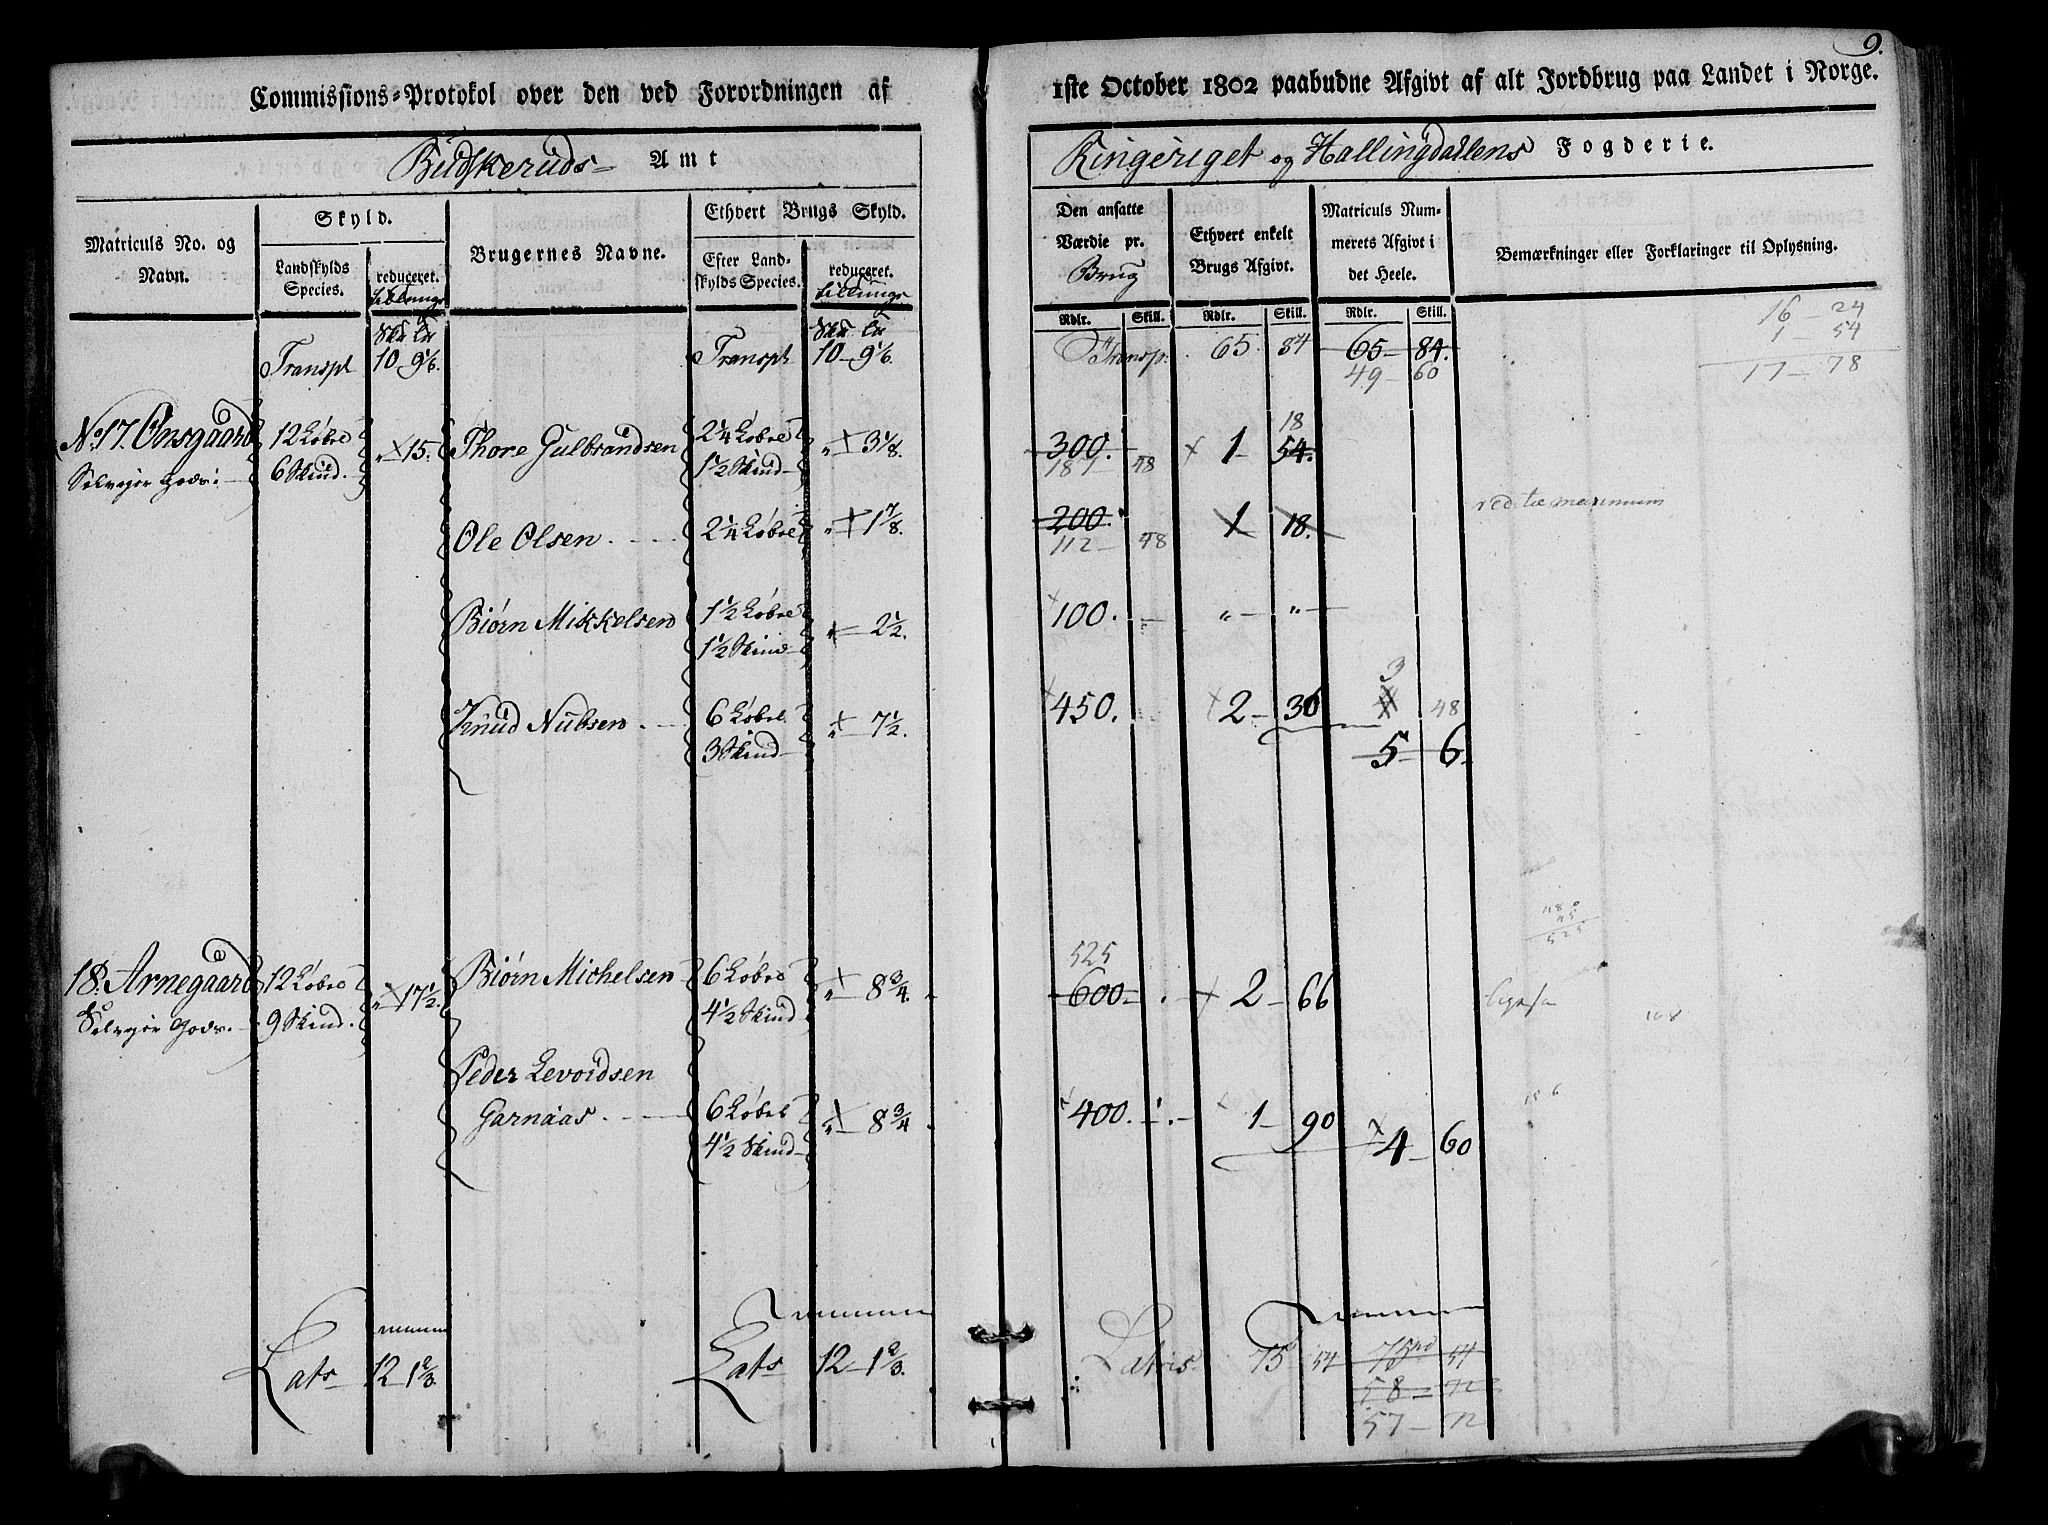 9.
Commissions-Protokol over den ved Forordningen af 1ste October 1802 paabudne Afgivt af alt Jordbrug paa Landet i Norge.
Budskeruds- Amt
Ringeriget og Hallingdallens Fogderie.
Matriculs No. og Navn.
Skyld.
Landskylds Species.
reduceret.
Brugernes Navne.
Ethvert Brugs Skyld.
Efter Landskylds Species.
reduceret.
Den ansatte Værdie pr. Brug
Ethvert enkelt Brugs Afgivt.
Matriculs Nummerets Afgivt i det Heele.
Bemærkninger eller Forklaringer til Oplysning.
Rdlr. Skill. Rdlr. Skill. Rdlr. Skill.
16 - 24
1 - 54
17 - 78
Transpt 10 - 9 1/6. Transpt 10 - 9 1/6. Transp: 65 84 65 - 84.
49 - 60
18
No. 17. Onsgaard 12 Løbre 15. Thore Gulbrandsen 2 1/4 Løbre 3 1/8. 300. 1 - 54.
Selvejer Gods: 6 Skind. 1 1/2 Skind 187 - 48
red: til maximum
Ole Olsen 2 1/4 Løbre 1 7/8. 200. 1 18.
112 - 48
Biørn Mikkelsen 1 1/2 Løbre 2 1/2. 100. " - "
1 1/2 Skind
3
Knud Nubsen 6 Løbre 7 1/2. 450. 2 - 36 48
3 Skind 5 - 6
480
45
525
525
18. Arnegaard 12 Løbre 17 1/2. Biørn Michelsen 6 Løbre 8 3/4. 600 2 - 66
Selvejer Gods. 9 Skind. 4 1/2 Skind
108
Peder Levordsen
Garnaas 6 Løbre 8 3/4. 400. 1 - 90
4 1/2 Skind 4 - 60
156
Lats 12 - 1 2/3. Lats 12 - 1 2/3. Latris 75 54 75 54
58 - 72
57 - 72